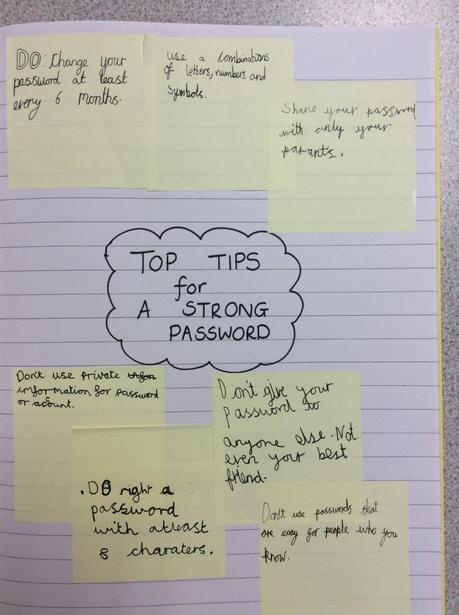 DO: Change your
password at least
every 6 months.
use a combinations
of letters, numbers and
symbols.
Share your password
with only your
parants.
TOP TIPS
for
A STRONG
PASSWORD
Don't use private
information for password
or acount.
Don't give your
password to
anyone else. Not
even your best
friend.
. DO right a
password
with atleast
8 charaters.
Don't use passwords that
are easy for people who you
know.